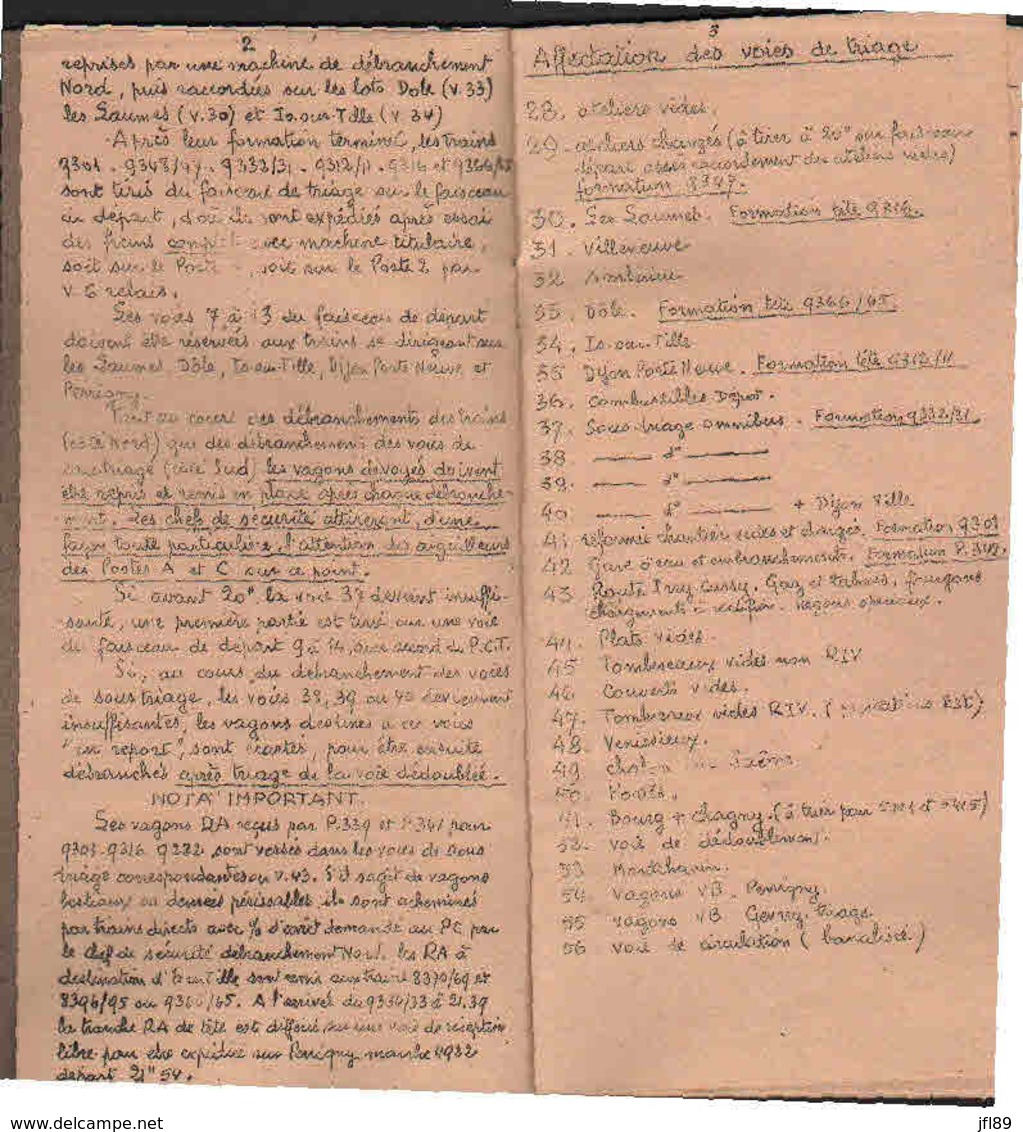 2
reprises par une machine de débranchement
Nord, puis raccordées sur les lots Dole (v.33)
les Laumes (v.30) et Is-sur-Tille (v.34)
Après leur formation terminé, les trains
9301 - 9348/47 - 9332/31 - 9312/11 - 9316 et 9366/65
sont tirés du faisceau de triage sur le faisceau
du départ, d'où ils sont expédiés après essai
des freins avec machine titulaire,
soit sur le Poste, soit sur le Poste 2 par
v.6 relais.
Les voies 7 à 13 du faisceau de départ
doivent être réservées aux trains se dirigeant sur
les Laumes, Dôle, Is-sur-Tille, Dijon Porte Neuve et
Perrigny.
Tant au cours des débranchements des trains
(côté Nord) que des débranchements des voies de
sous triage (côté Sud) les vagons dévoyés doivent
être repris et remis en place après chaque débranche-
ment. Les chefs de sécurité attireront, d'une
façon toute particulière, l'attention des aiguilleurs
des Postes A et C sur ce point.
Si avant 20h, la voie 37 devient insuffi-
sante, une première partie est tirée sur une voie
du faisceau de départ 9 à 14, avec accord du P.C.T.
Si, au cours du débranchement des voies
de sous triage, les voies 38, 39 ou 40 deviennent
insuffisantes, les vagons destinés à ces voies
"en report", sont écartés, pour être ensuite
débranchés après triage de la voie dédoublée.
NOTA IMPORTANT.
Les vagons RA reçus par P.339 et P.341 pour
9301-9316-9332 sont versés dans les voies de sous
triage correspondantes ou v.43. S'il s'agit de vagons
bestiaux ou denrées périssables ils sont acheminés
par trains directs avec % d'arrêt demandé au PC par
le chef de sécurité débranchement Nord. les RA à
destination d'Is-sur-Tille sont remis aux trains 8370/69 et
8396/95 ou 9366/65. A l'arrivée du 9334/33 à 21.39
la tranche RA de tête est différée sur une voie de réception
libre pour être expédiée sur Perrigny marche 4932
départ 21h54.
3
Affectation des voies de triage
28. ateliers vides.
29. ateliers chargés (à tirer à 20h sur faisceau
départ après raccordement des ateliers vides)
formation 9347.
30. Les Laumes. Formation tête 9316.
31. Villeneuve
32 Ambérieu
33. Dôle. Formation tête 9366/65.
34. Is-sur-Tille
35 Dijon Porte Neuve. Formation tête 9312/11
36. Combustibles Dépôt.
37. Sous-triage omnibus. Formation 9332/31.
38 —— d° ——
39. —— d° ——
40 —— d° —— + Dijon Ville.
41. réformés chantier vides et chargés. Formation 9301
42. Gare d'eau et embranchements. Formation P.342.
43. Route Gaz et fourgons
chargements à rectifier. vagons spéciaux.
44. Plats vides.
45 Tombereaux vides non RIV
46. Couverts vides.
47. Tombereaux vides RIV. ( Est)
48. Venissieux.
49. Saône
50.
51. Bourg + Chagny. (à trier pour et )
52. voie de dédoublement.
53. Montchanin.
54. Vagons VB. Perrigny.
55 vagons VB Gevrey-triage
56 voie de circulation (banalisée.)
jfl89